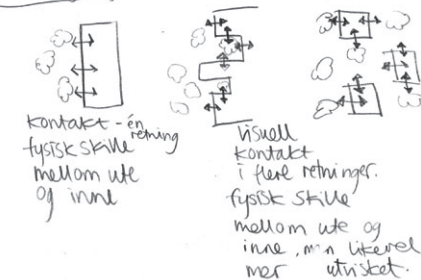 kontakt - én
retning
fysisk skille
mellom ute
og inne
visuell
kontakt
i flere retninger.
fysisk skille
mellom ute og
inne, men likevel
mer utvisket.